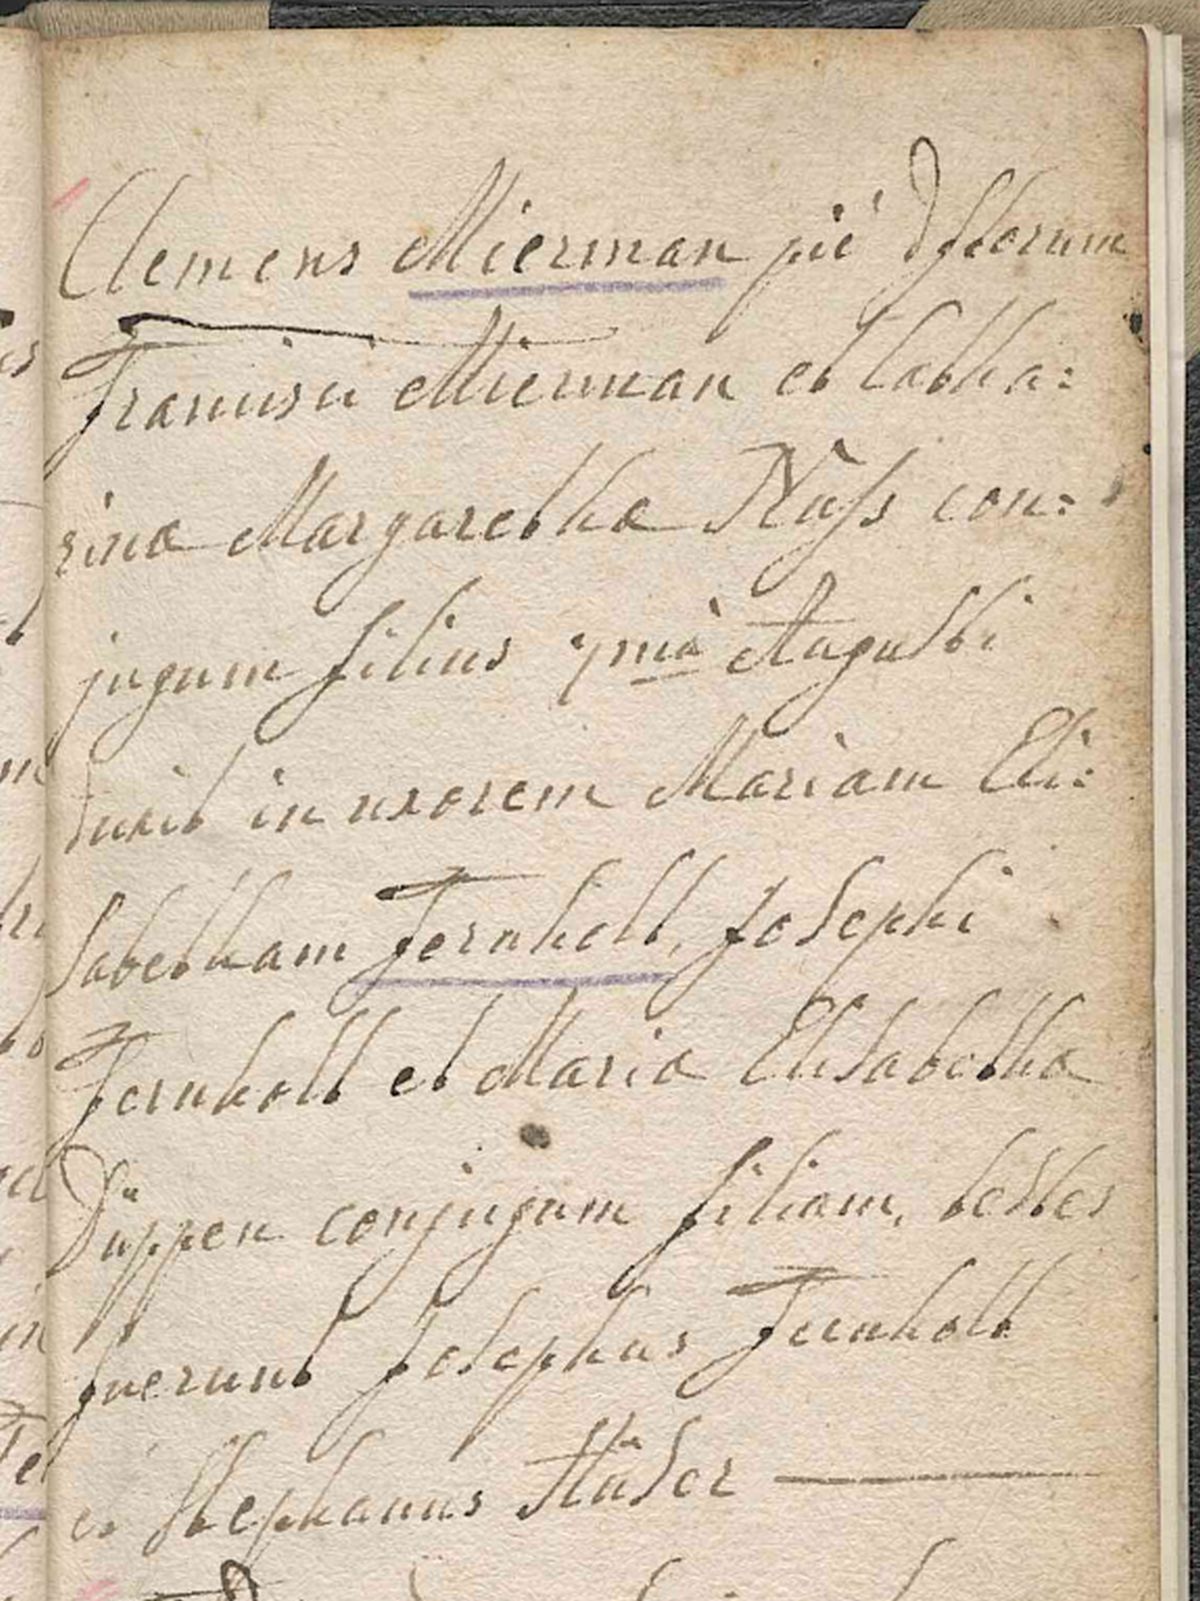 Clemens Mierman pié dftorum
Francisci Mierman et Catha:
rina Margaretha Nuss con:
jugum filius 7mâ Augusti
duxit in uxorem Mariam Eli:
sabetham Fernholt, Josephi
Fernholt et Maria Elisabetha
Düppen conjugum filiam, testes
fuerunt Josephus Fernholt
et Stephanus